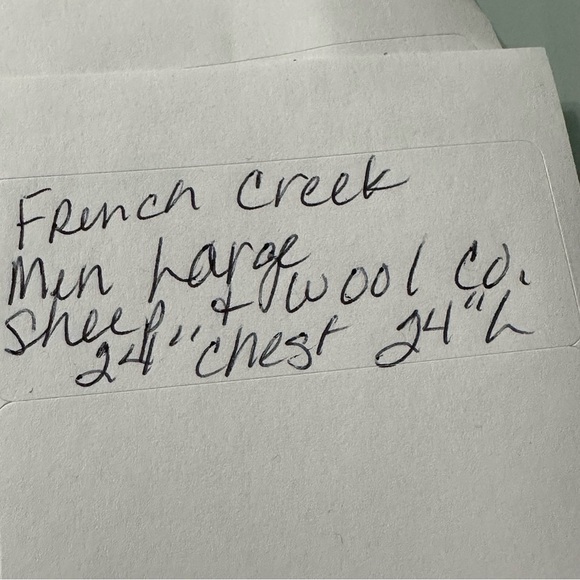 French Creek
Men Large
Sheep & Wool Co.
24" chest 24"L